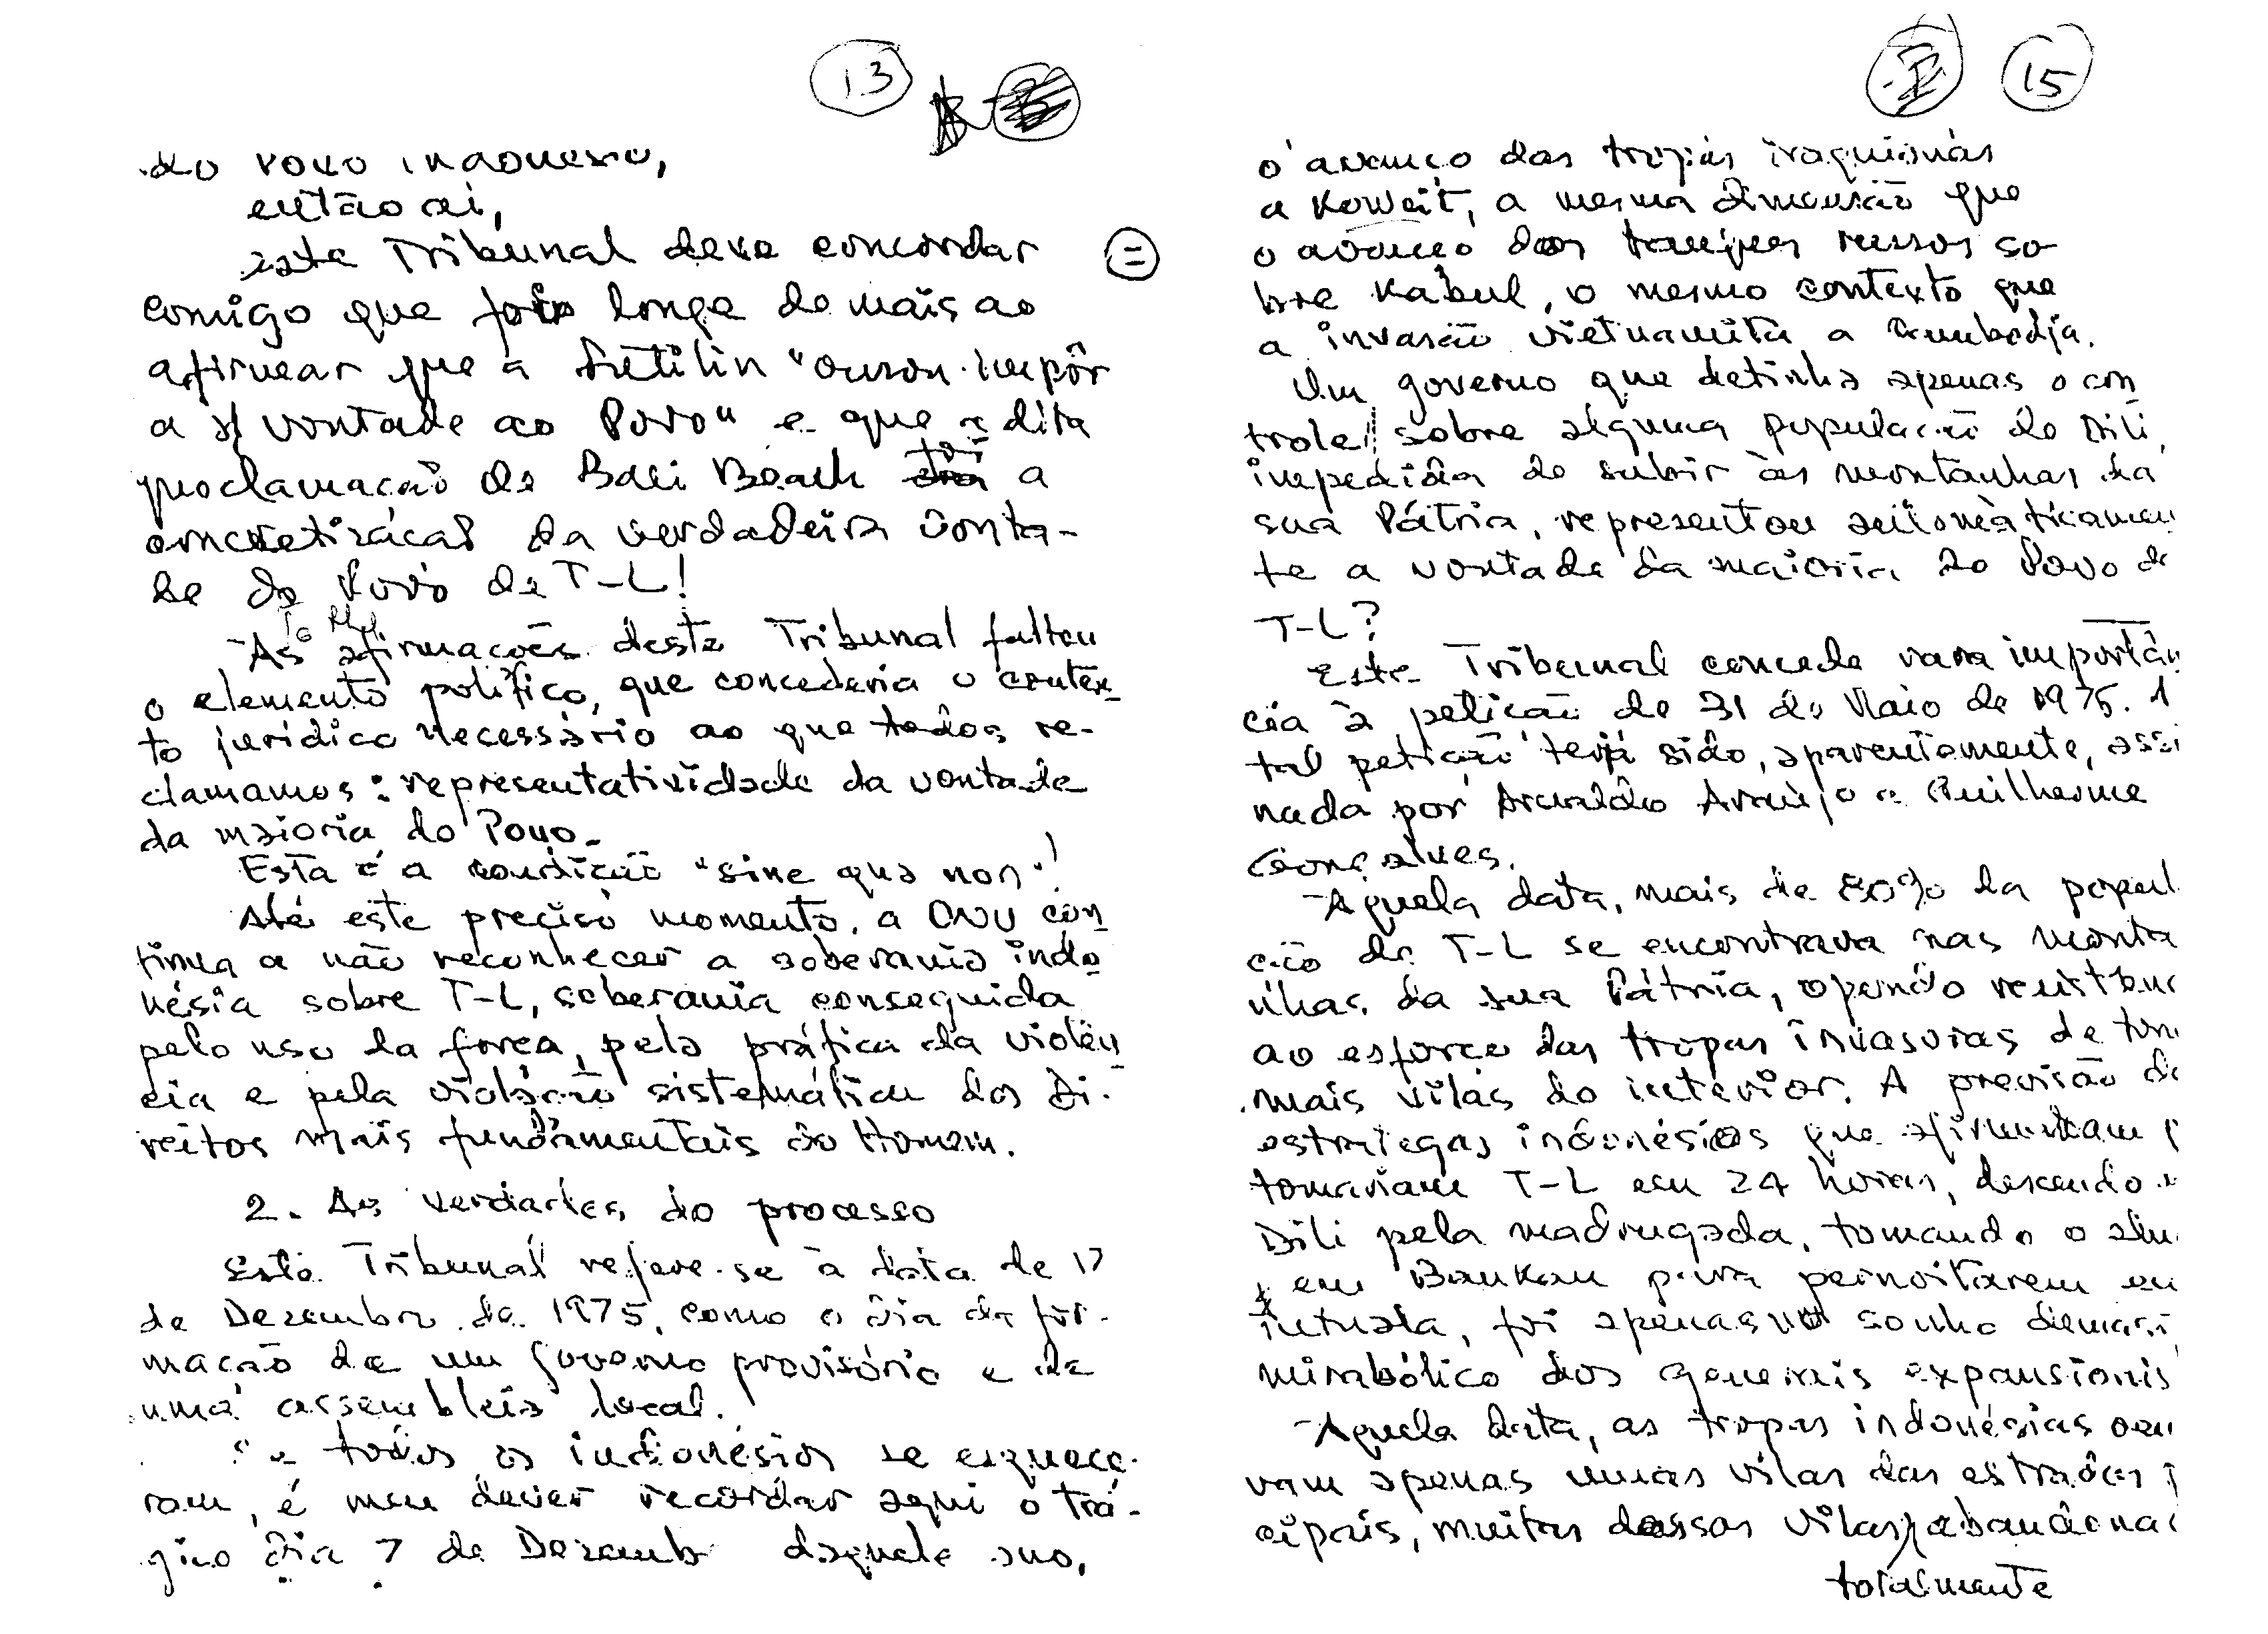 13
do Povo indonésio,
então aí,
este Tribunal deve concordar
comigo que foi longe demais ao
afirmar que a Fretilin "ousou impôr
a s/ vontade ao Povo" e que a dita
proclamação de Bali Beach foi a
concretização da verdadeira vonta-
de do Povo de T-L!
Às afirmações deste Tribunal faltou
o elemento político, que concederia o contex-
to jurídico necessário ao que todos re-
clamamos: representatividade da vontade
da maioria do Povo.
Esta é a condição "sine qua non"!
Até este preciso momento, a ONU con-
tinua a não reconhecer a soberania indo-
nésia sobre T-L, soberania conseguida
pelo uso da força, pela prática da violên-
cia e pela violação sistemática dos Di-
reitos mais fundamentais do Homem.
2. As verdades do processo
Este Tribunal refere-se à data de 17
de Dezembro de 1975, como o dia da for-
mação de um governo provisório e de
uma assembleia local.
todos os indonésios se esquece-
ram, é meu dever recordar aqui o trá-
gico dia 7 de Dezemb daquele ano,
15
o avanço das tropas iraquianas
a Koweit, a mesma dimensão que
o avanço dos tanques russos so-
bre Kabul, o mesmo contexto que
a invasão vietnamita a Cambodja.
Um governo que detinha apenas o con-
trole sobre alguma população de Dili,
impedida de subir às montanhas da
sua Pátria, representou automàticamen
te a vontade da maioria do Povo de
T-L?
Este Tribunal concede rara importân
cia à petição de 31 de Maio de 1975. A
tal petição terá sido, aparentemente, assi
nada por Arnaldo Araújo e Guilherme
Gonçalves.
Àquela data, mais de 80% da popul
ção de T-L se encontrava nas monta
nhas da sua Pátria, opondo resistênc
ao esforço das tropas invasoras de tom
mais vilas do interior. A previsão do
estrategas indonésios que afirmavam
tomariam T-L em 24 horas, descendo
Dili pela madrugada, tomando o alm
em Baukau para pernoitarem em
Tutuala, foi apenas um sonho demasi
mirabólico dos generais expansionis
Àquela data, as tropas indonésias ocu
vam apenas umas vilas das estradas
cipais, muitas dessas vilas abandonad
totalmente